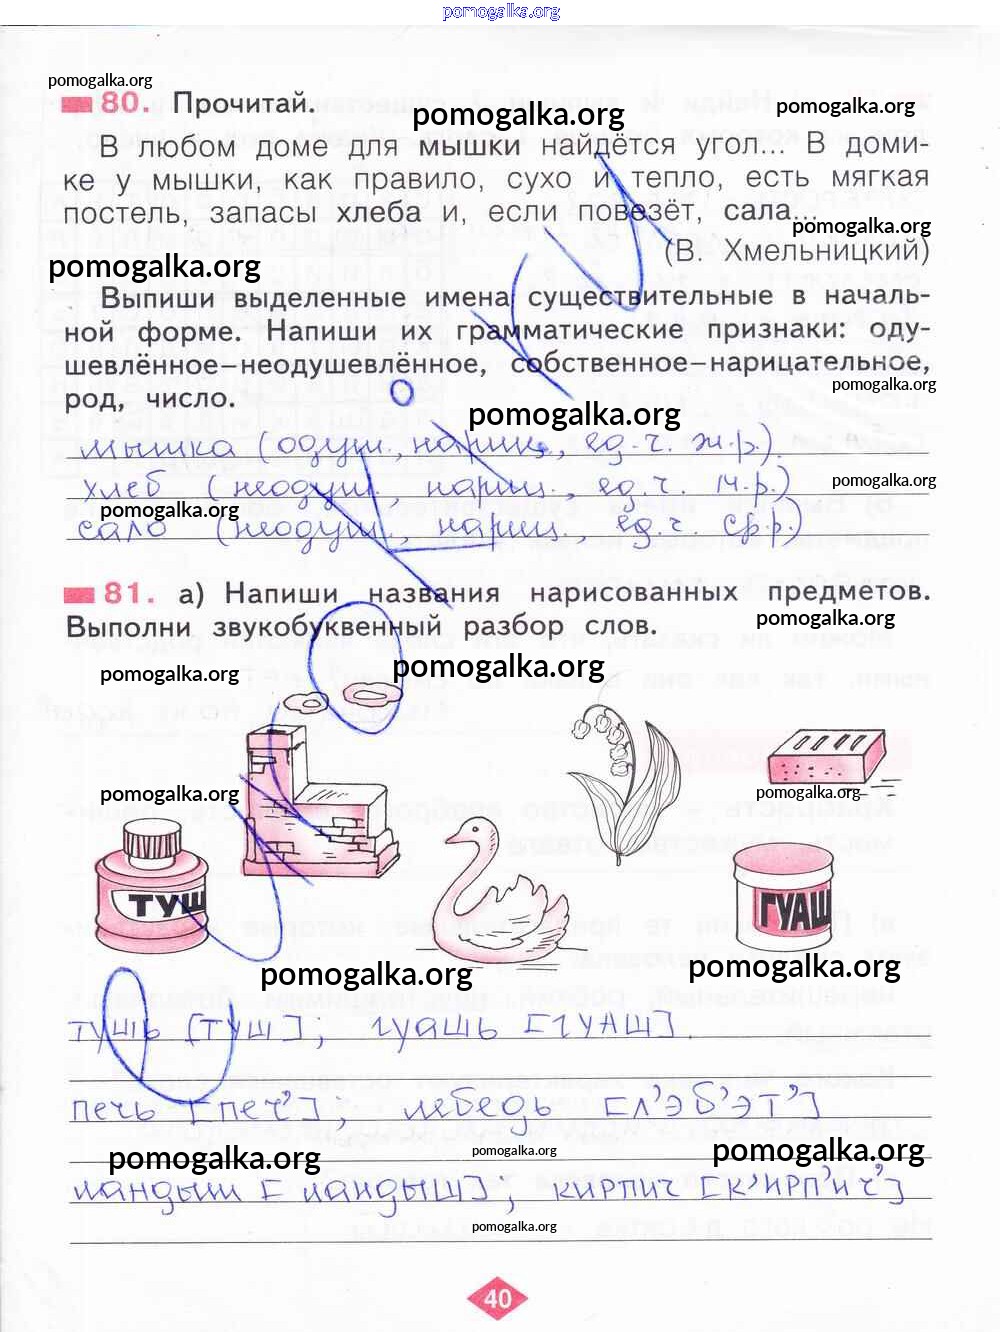 pomogalka.org
pomogalka.org
80. Прочитай.
pomogalka.org
pomogalka.org
В любом доме для мышки найдётся угол... В доми-
ке у мышки, как правило, сухо и тепло, есть мягкая
постель, запасы хлеба и, если повезёт, сала...
pomogalka.org
(В. Хмельницкий)
pomogalka.org
Выпиши выделенные имена существительные в началь-
ной форме. Напиши их грамматические признаки: оду-
шевлённое–неодушевлённое, собственное–нарицательное,
pomogalka.org
род, число.
pomogalka.org
мышка (одуш., нариц., ед.ч. ж.р.).
хлеб (неодуш., нариц., ед.ч. м.р.)
pomogalka.org
pomogalka.org
сало (неодуш., нариц., ед.ч ср.р.)
81. а) Напиши названия нарисованных предметов.
Выполни звукобуквенный разбор слов.
pomogalka.org
pomogalka.org
pomogalka.org
pomogalka.org
pomogalka.org
ТУШ
ГУАШ
pomogalka.org
pomogalka.org
тушь [туш]; гуашь [гуаш].
печь [печ’], лебедь [л’эб’эт’]
pomogalka.org
pomogalka.org
pomogalka.org
ландыш [ландыш]; кирпич [к’ирп’ич’]
pomogalka.org
40